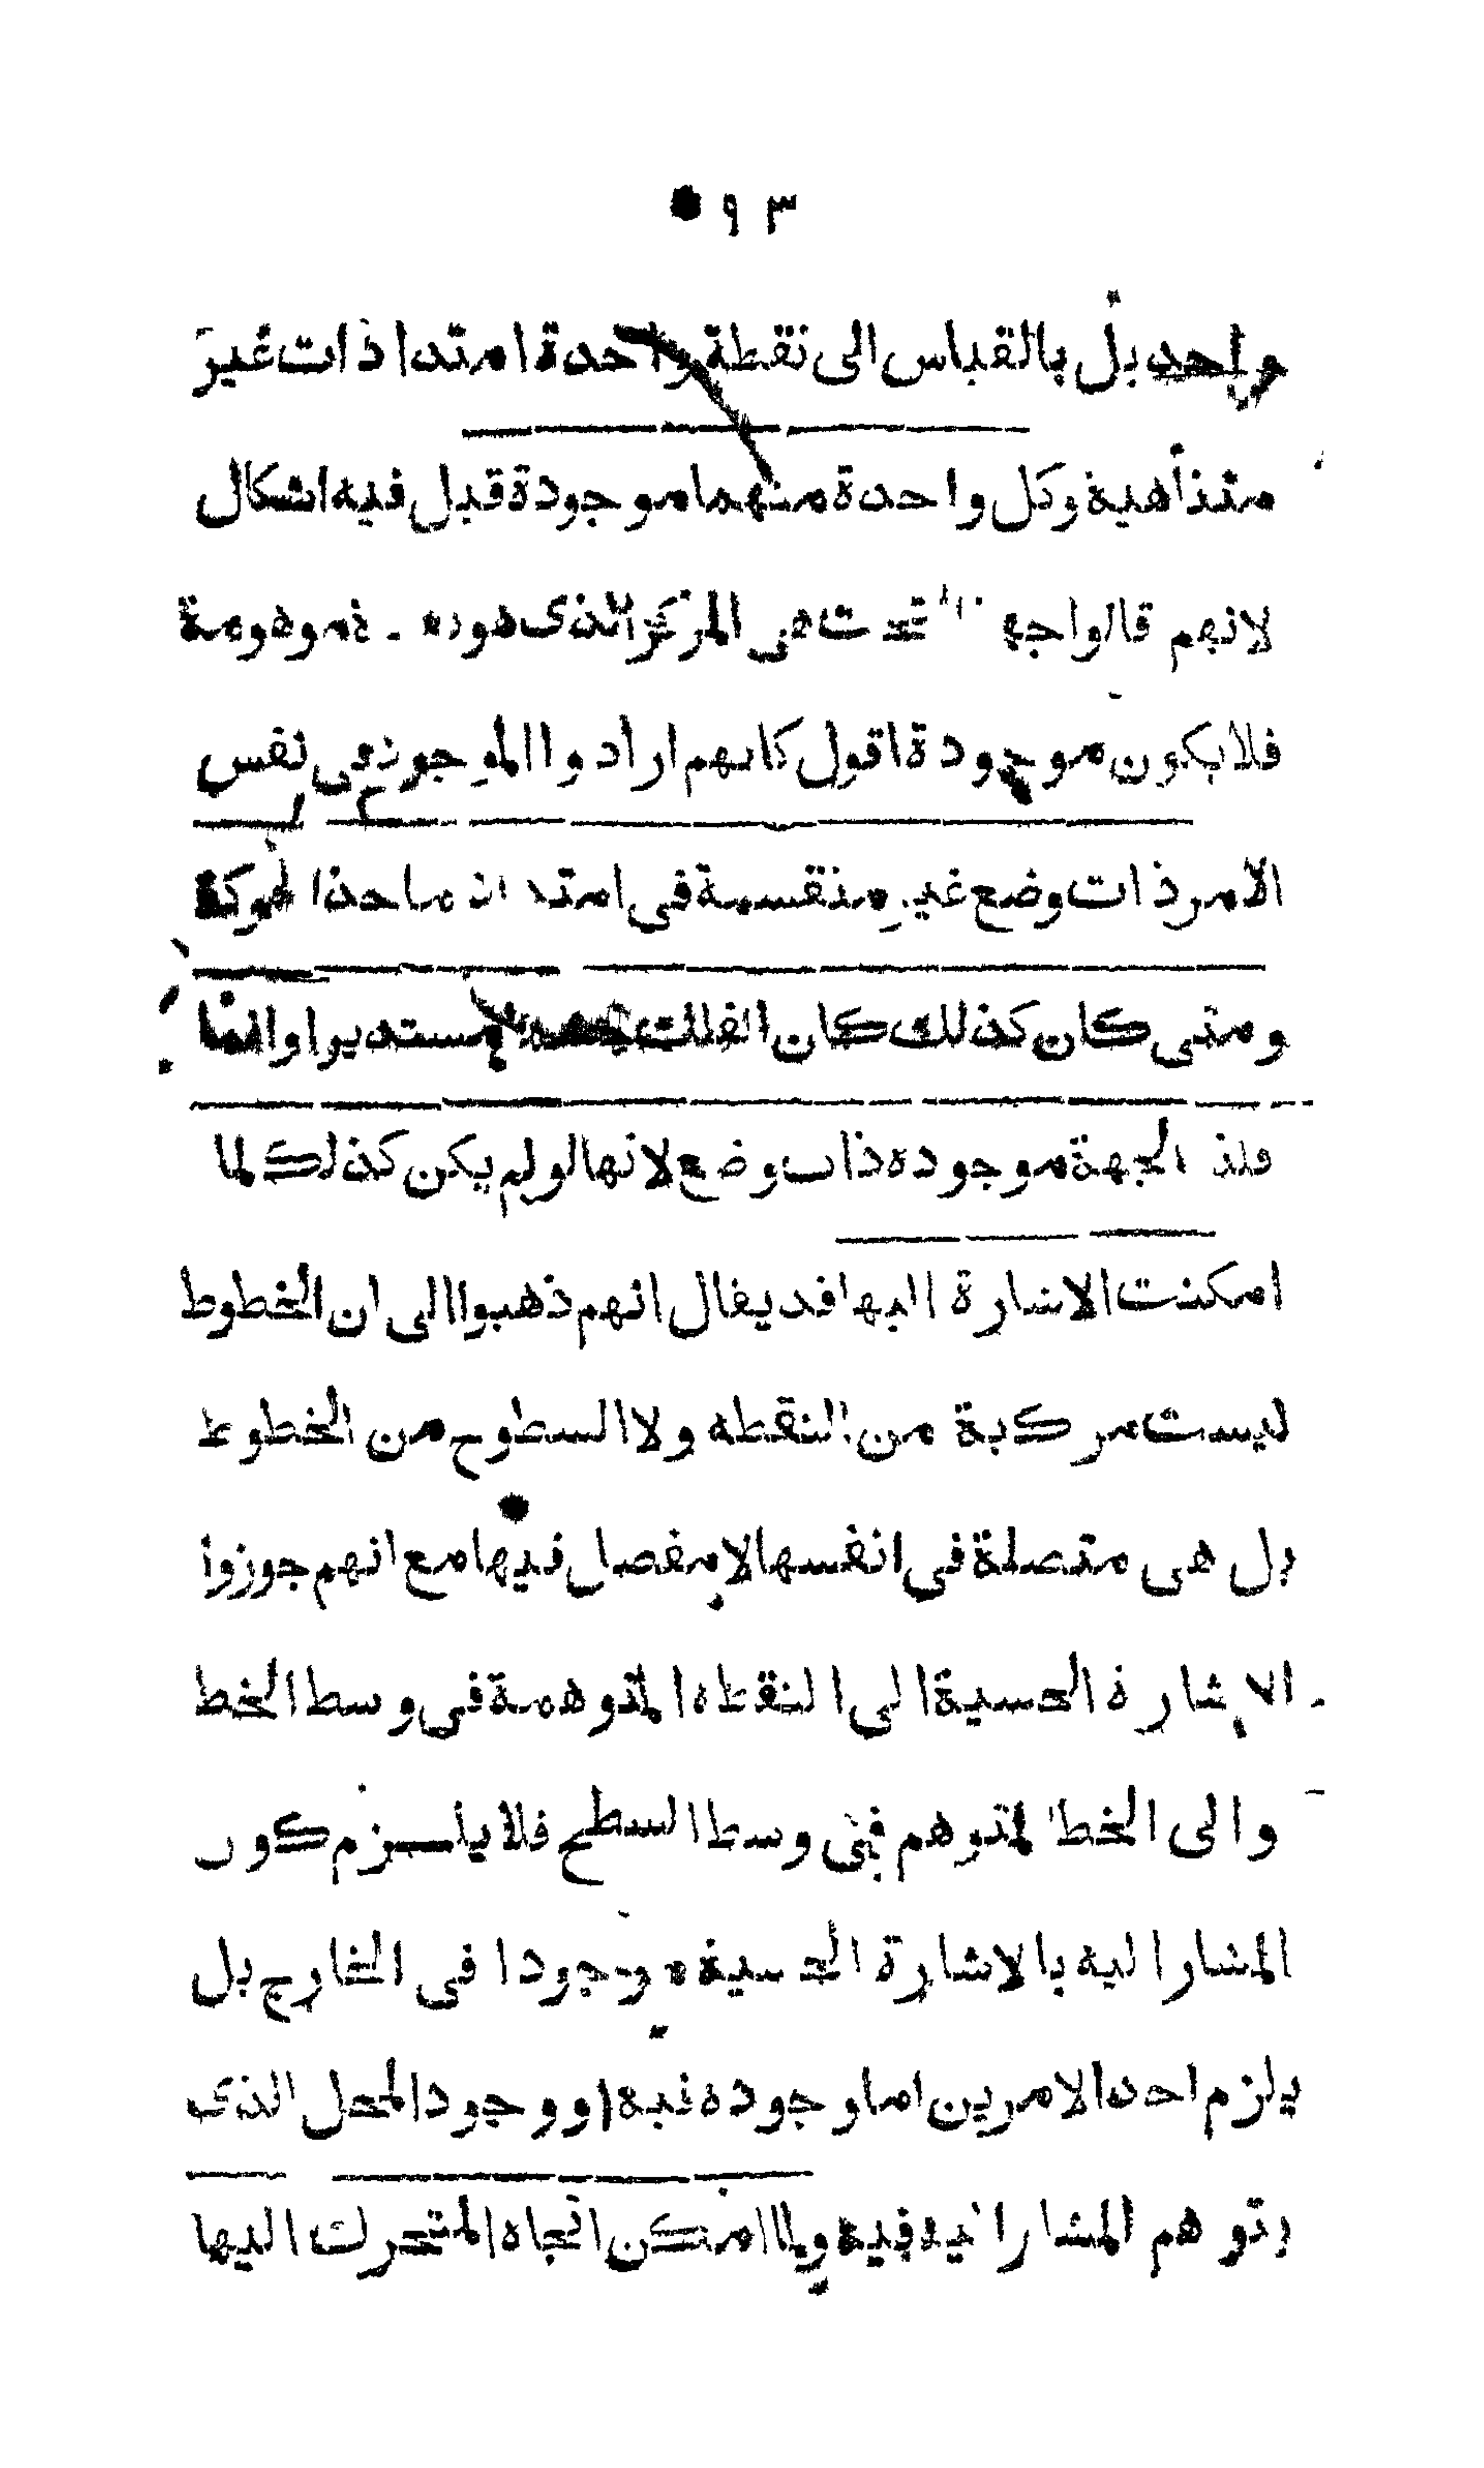 ٩٣
واحد بل بالقياس الى نقطة واحدة امتدادات غير
متناهية وكل واحدة منهما موجودة قيل فيه اشكال
لانهم قالوا جهة تحت هى المركز الذى هو نقطة موهومة
فلا يكون موجودة اقول كانهم ارادوا الموجود فى نفس
الامر ذات وضع غير منقسمة فى امتداد ماخذ الحركة
ومتى كان كذلك كان الفلك مستديرا وانما
قلنا الجهة موجوده ذات وضع لانها لو لم يكن كذلك لما
امكنت الاشارة اليها قد يقال انهم ذهبوا الى ان الخطوط
ليست مركبة من النقطه ولا السطوح من الخطوط
بل هى متصلة فى انفسها لا مفصل فيها مع انهم جوزوا
الاشارة الحسية الى النقطه المتوهمة فى وسط الخط
والى الخط المتوهم فى وسط السطح فلا يلزم كون
المشار اليه بالاشارة الحسية موجودا فى الخارج بل
يلزم احد الامرين اما وجوده فيه او وجود المحل الذى
يتوهم المشار اليه فيه ولما امكن اتجاه المتحرك اليها